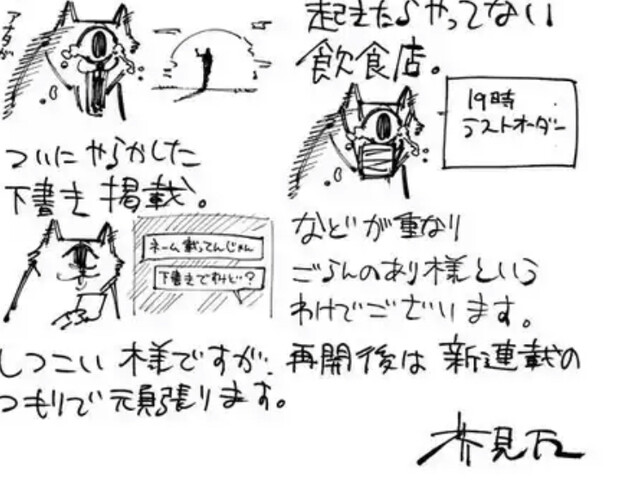 アナタが
ついにやらかした
下書き掲載。
ネーム載ってんじゃん
下書きですけど?
起きたらやってない
飲食店。
19時
ラストオーダー
などが重なり
ごらんのあり様という
わけでございます。
しつこい様ですが、再開後は新連載の
つもりで頑張ります。
芥見下々